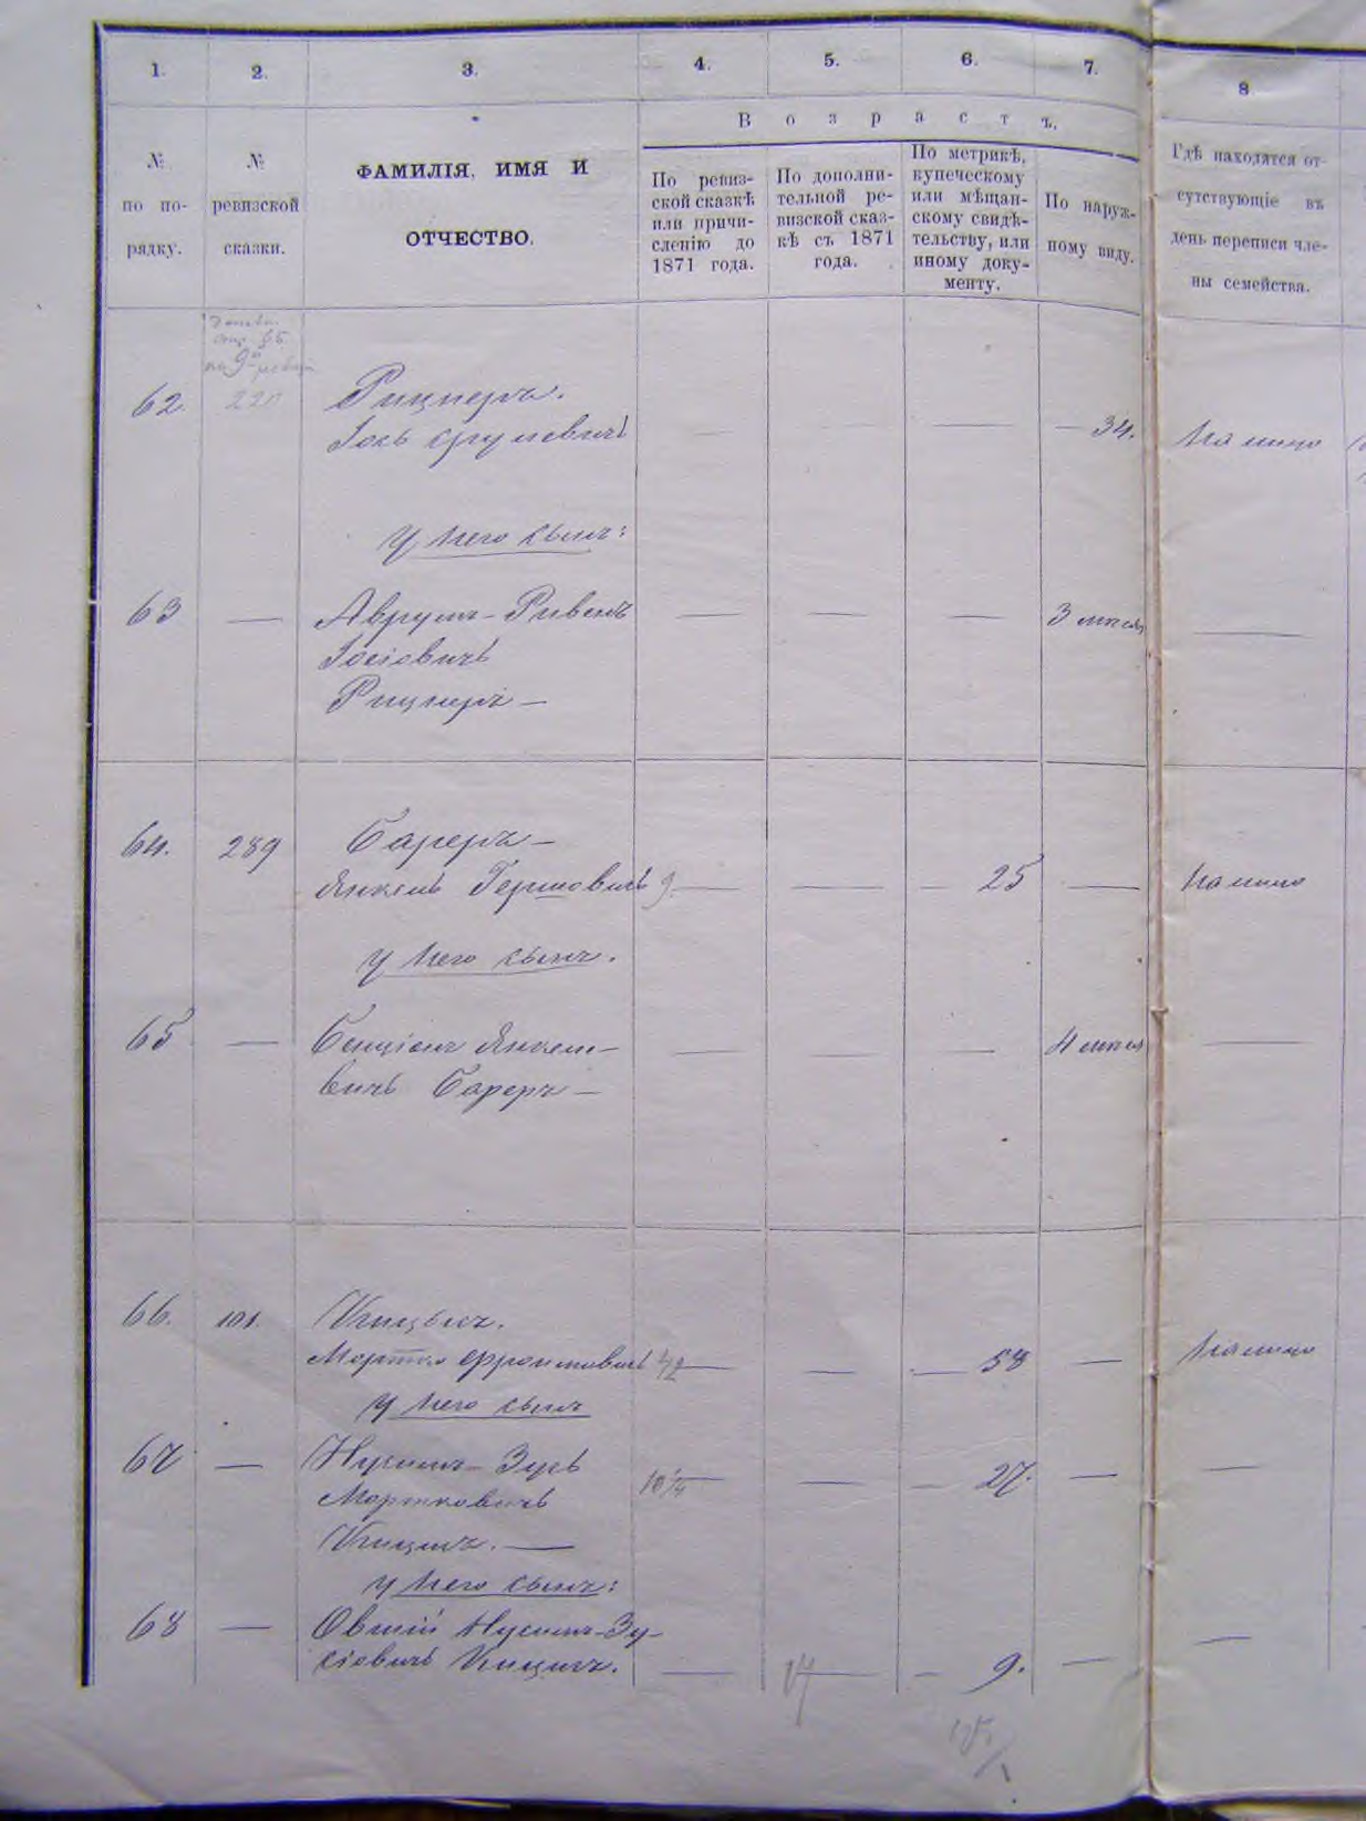 1. 2. 3. 4. 5. 6. 7. 8
Возрастъ.
№ по по-
рядку.
№
ревизской
сказки.
ФАМИЛІЯ, ИМЯ И
ОТЧЕСТВО.
По ревиз-
ской сказкѣ
или причи-
сленію до
1871 года.
По дополни-
тельной ре-
визской сказ-
кѣ съ 1871
года.
По метрикѣ,
купеческому
или мѣщан-
скому свидѣ-
тельству, или
иному доку-
менту.
По наруж-
ному виду.
Гдѣ находятся от-
сутствующіе въ
день переписи чле-
ны семейства.
62. Рицнеръ.
Іось Срулевичъ — — — — 34. На лицо
у него сынъ:
63 — Аврумъ-Ривенъ — — — 3 —
Іосіовичъ
Рицнеръ —
64. 289 Бареръ —
Янкель Гершовичъ 9. — — — 25 — На лицо
у него сынъ.
65 — Бенціонъ Янкеле- — — — 4 —
вичъ Бареръ —
66. 101.
Мортко Фроимовичъ 42 — — — 58 — На лицо
у него сынъ
67 — Нусинъ-Зусь 10/4 — — — 27. — —
Мортковичъ
у него сынъ:
68 — Овшій Нусинъ-Зу-
сіовичъ — — — 9. — —